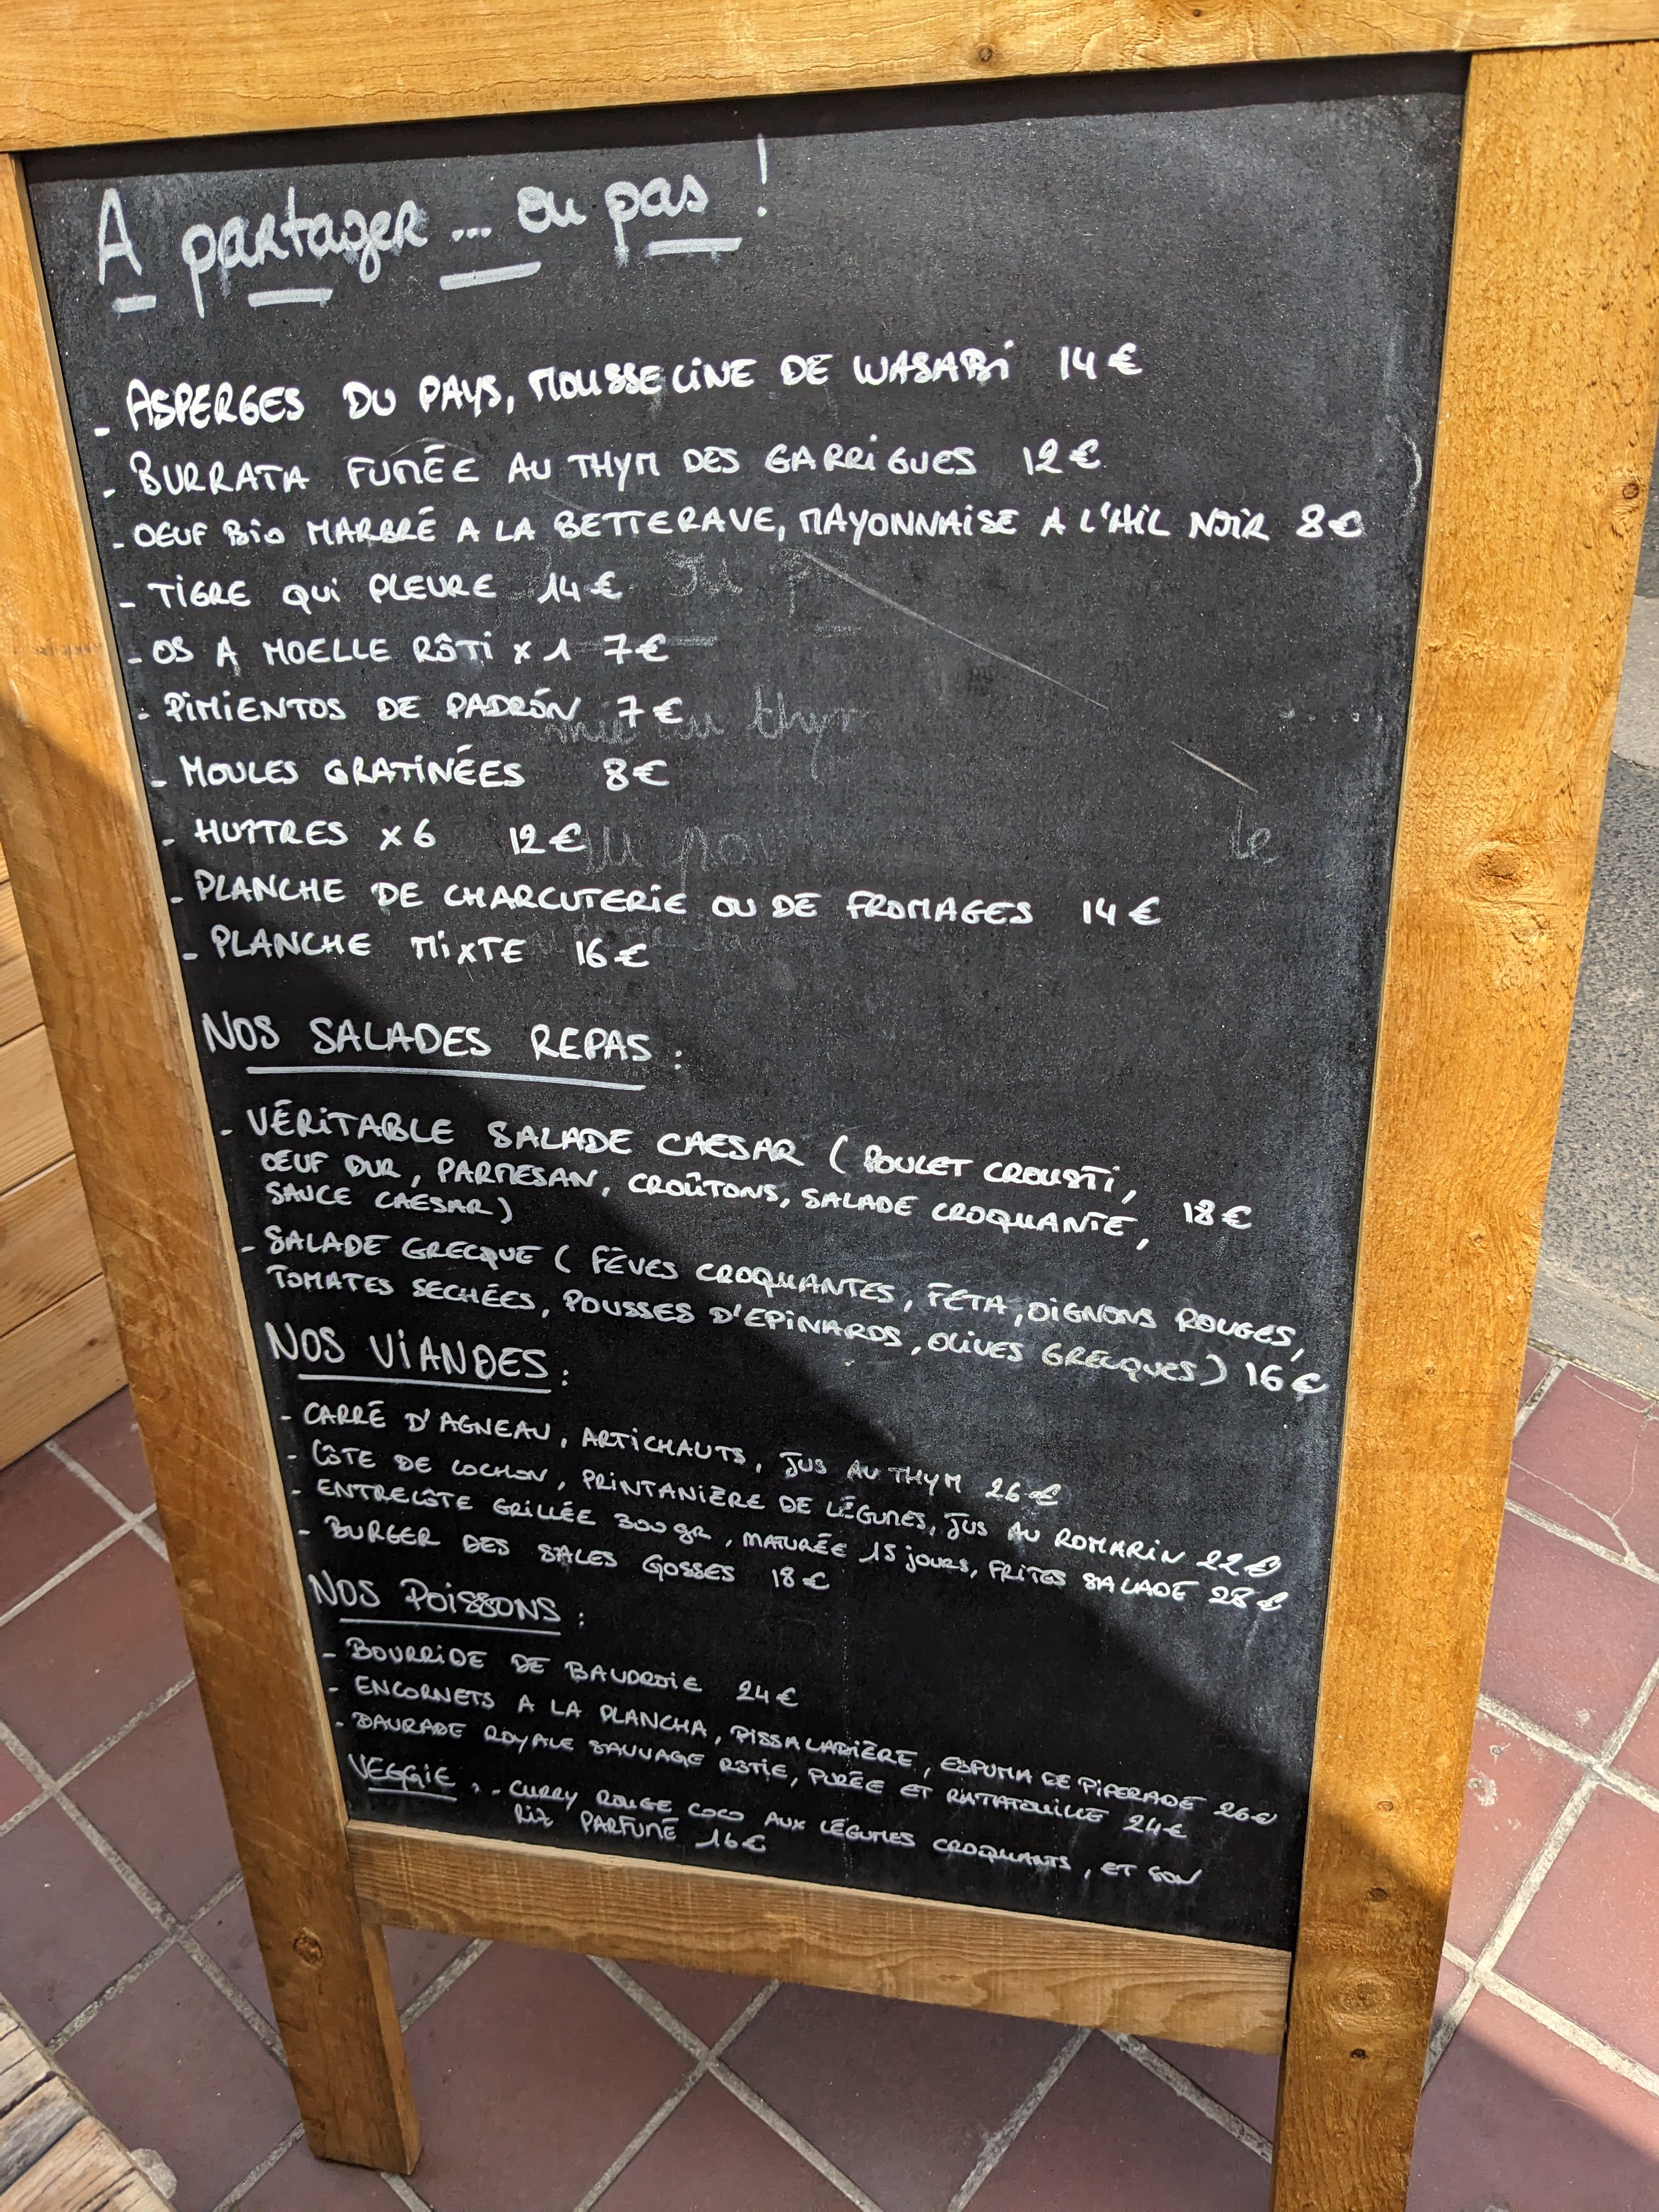 A partager ... ou pas !
- ASPERGES DU PAYS, MOUSSELINE DE WASABI 14€
- BURRATA FUMÉE AU THYM DES GARRIGUES 12€
- OEUF BIO MARBRÉ A LA BETTERAVE, MAYONNAISE A L'AIL NOIR 8€
- TIGRE QUI PLEURE 14€
- OS A MOELLE RÔTI x 1 7€
- PIMIENTOS DE PADRÓN 7€
- MOULES GRATINÉES 8€
- HUÎTRES x 6 12€
- PLANCHE DE CHARCUTERIE OU DE FROMAGES 14€
- PLANCHE MIXTE 16€
NOS SALADES REPAS :
- VÉRITABLE SALADE CAESAR (POULET CROUSTI,
OEUF DUR, PARMESAN, CROÛTONS, SALADE CROQUANTE, 18€
SAUCE CAESAR)
- SALADE GRECQUE (FÈVES CROQUANTES, FÉTA, OIGNONS ROUGES,
TOMATES SECHÉES, POUSSES D'EPINARDS, OLIVES GRECQUES) 16€
NOS VIANDES :
- CARRÉ D'AGNEAU, ARTICHAUTS, JUS AU THYM 26€
- CÔTE DE COCHON, PRINTANIÈRE DE LÉGUMES, JUS AU ROMARIN 22€
- ENTRECÔTE GRILLÉE 300gr, MATURÉE 15 jours, FRITES SALADE 28€
- BURGER DES SALES GOSSES 18€
NOS POISSONS :
- BOURRIDE DE BAUDROIE 24€
- ENCORNETS A LA PLANCHA, PISSALADIÈRE, ESPUMA DE PIPERADE 26€
- DAURADE ROYALE SAUVAGE RÔTIE, PURÉE ET RATATOUILLE 24€
VEGGIE : - CURRY ROUGE COCO AUX LÉGUMES CROQUANTS, ET SON
RIZ PARFUMÉ 16€